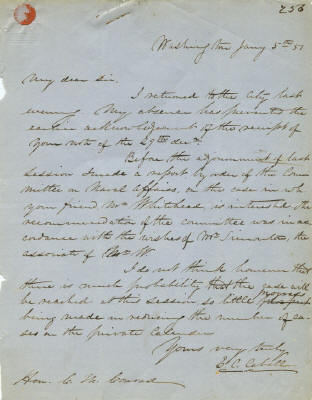 256
Washington Jany 5th 51
My dear Sir.
I returned to the City last
evening. My absence has prevented the
earlier acknowledgement of the receipt of
your note of the 29th decr.
Before the adjournment of last
Session I made a report by order of the Com
mittee on Naval Affairs, in the case in wh
your friend Mr Whitehead, is interested. The
recommendation of the committee was in ac
cordance with the wishes of Mr Simonton, the
associate of Mr W.
I do not think however that
there is much probability that the case will
be reached at this session so little progress
being made in reducing the number of ca
ses on the private Calendar
Yours very truly
E. C. Cabell
Hon. C. M. Conrad